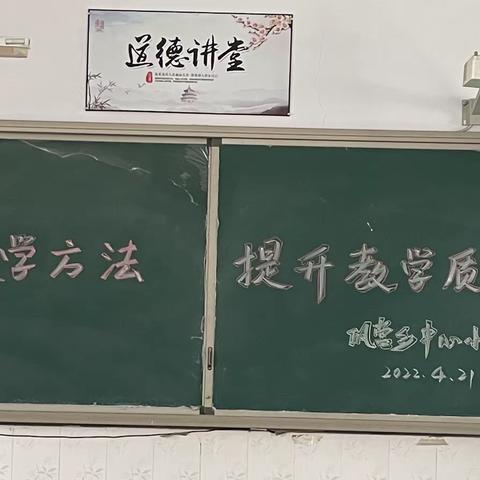 道德讲堂
学方法
提升教学质
营乡中心小
2022.4.21